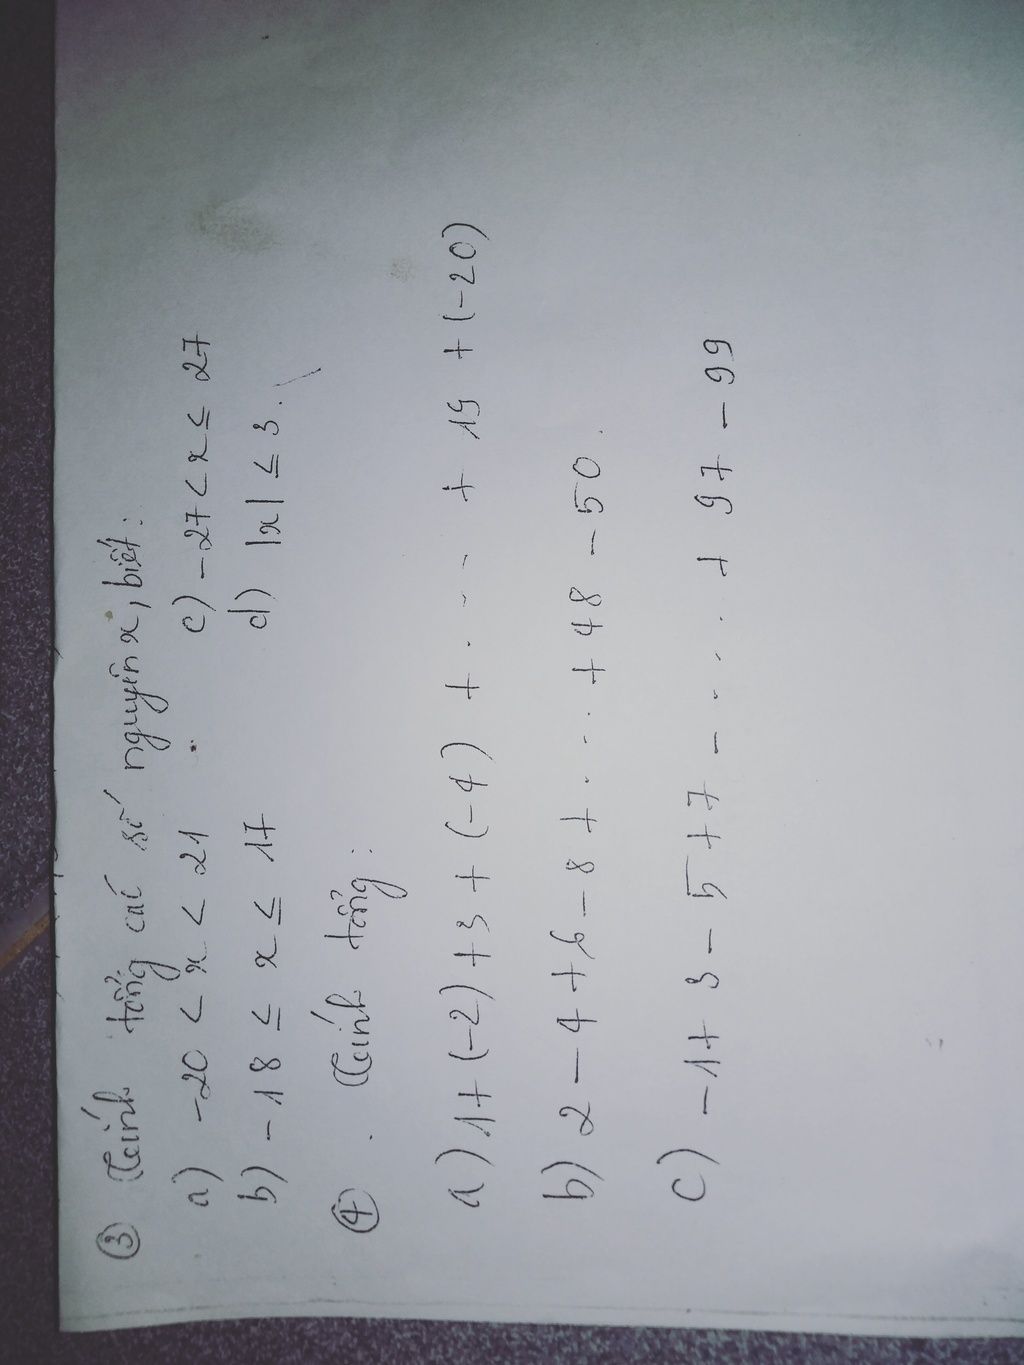 ③ Tính tổng các số nguyên x, biết:
a) -20 < x < 21 c) -27 < x ≤ 27
b) -18 ≤ x ≤ 17 d) |x| ≤ 3.
④. Tính tổng:
a) 1 + (-2) + 3 + (-4) + .... + 19 + (-20)
b) 2 - 4 + 6 - 8 + .... + 48 - 50.
c) -1 + 3 - 5 + 7 - ..... + 97 - 99